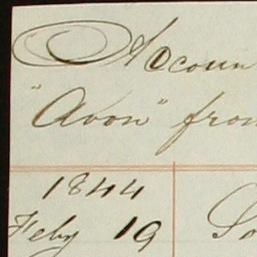 Accoun
"Avon" from
1844
Feby 19 So